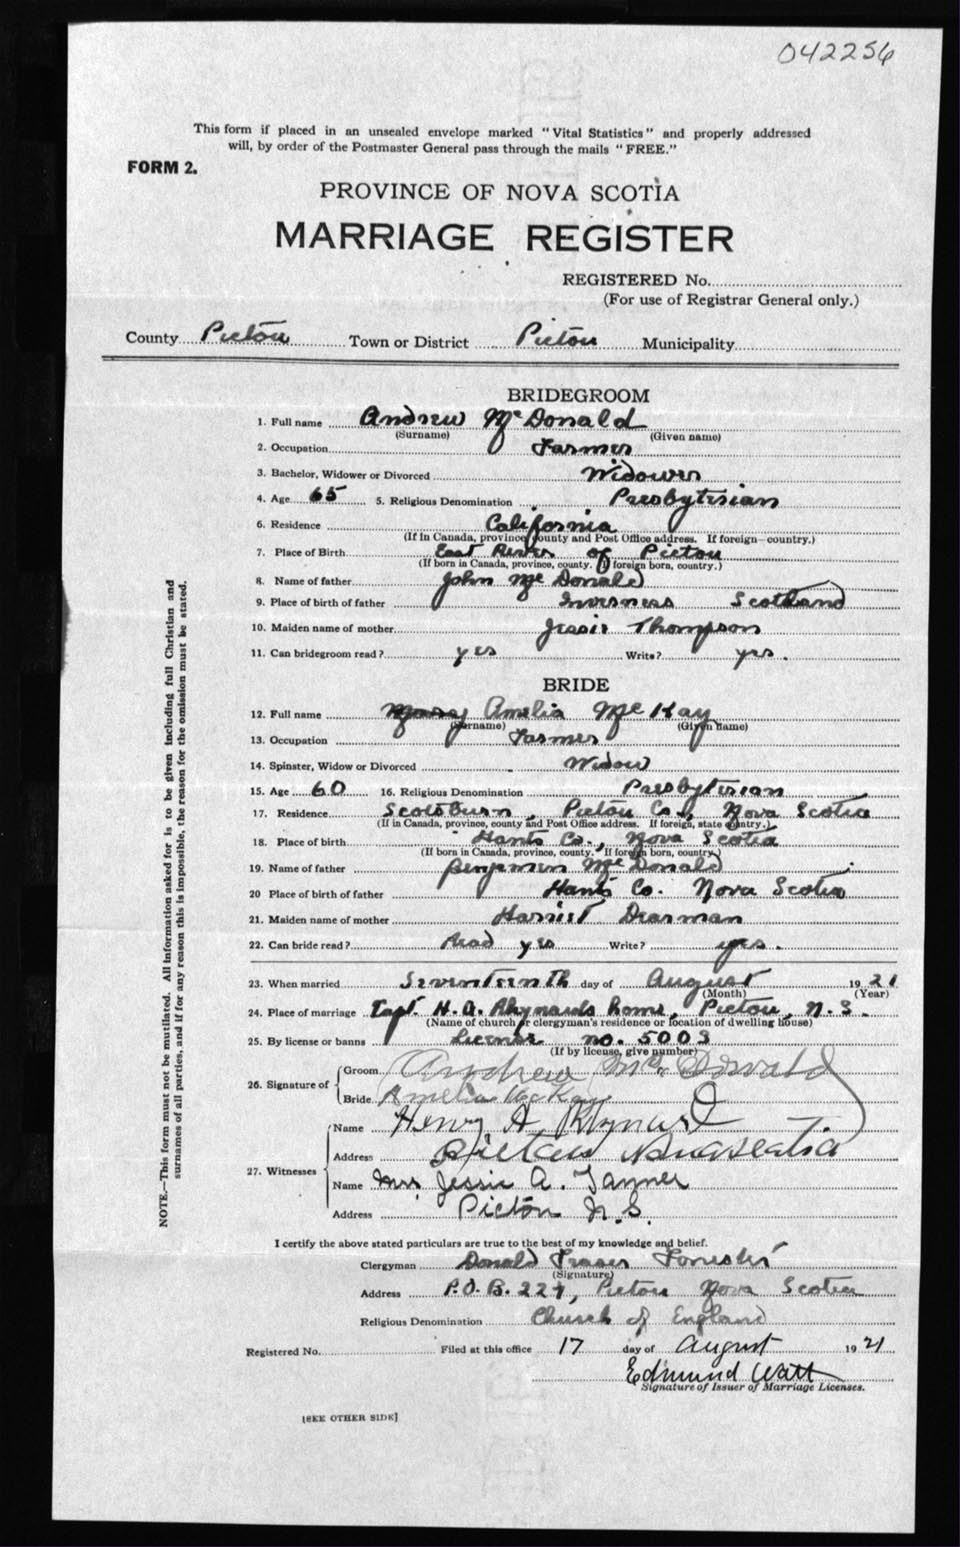 042256
This form if placed in an unsealed envelope marked "Vital Statistics" and properly addressed
will, by order of the Postmaster General pass through the mails "FREE."
FORM 2.
PROVINCE OF NOVA SCOTIA
MARRIAGE REGISTER
REGISTERED No.
(For use of Registrar General only.)
County Pictou Town or District Pictou Municipality
BRIDEGROOM
1. Full name Andrew McDonald
(Surname) (Given name)
2. Occupation Farmer
3. Bachelor, Widower or Divorced Widower
4. Age 65 5. Religious Denomination Presbyterian
6. Residence California
(If in Canada, province county and Post Office address. If foreign country.)
7. Place of Birth East River of Pictou
(If born in Canada, province, county. If foreign born, country.)
8. Name of father John McDonald
9. Place of birth of father Inverness Scotland
10. Maiden name of mother Jessie Thompson
11. Can bridegroom read? yes Write? yes.
BRIDE
12. Full name Amelia McKay
(Surname) (Given name)
13. Occupation Farmer
14. Spinster, Widow or Divorced Widow
15. Age 60 16. Religious Denomination Presbyterian
17. Residence Scotsburn, Pictou Co., Nova Scotia
(If in Canada, province, county and Post Office address. If foreign, state country.)
18. Place of birth Hants Co., Nova Scotia
(If born in Canada, province, county. If foreign born, country.)
19. Name of father Benjamin McDonald
20 Place of birth of father Hants Co. Nova Scotia
21. Maiden name of mother Harriet Dearman
22. Can bride read? Read yes Write? yes.
23. When married Seventeenth day of August 1921
(Month) (Year)
24. Place of marriage Capt. H. A. Rhynards home, Pictou, N.S.
(Name of church or clergyman's residence or location of dwelling house)
25. By license or banns License no. 5003
(If by license, give number)
26. Signature of Groom Andrew McDonald
Bride Amelia McKay
27. Witnesses Name Henry A Rhynard
Address Pictou Nova Scotia
Name Mrs. Jessie A. Tanner
Address Pictou N.S.
I certify the above stated particulars are true to the best of my knowledge and belief.
Clergyman Donald Fraser Forrester
(Signature)
Address P.O.B. 227, Pictou Nova Scotia
Religious Denomination Church of England
Registered No. Filed at this office 17 day of August 1921
Edmund Watt
Signature of Issuer of Marriage Licenses.
[SEE OTHER SIDE]
NOTE.—This form must not be mutilated. All information asked for is to be given including full Christian and
surnames of all parties, and if for any reason this is impossible, the reason for the omission must be stated.